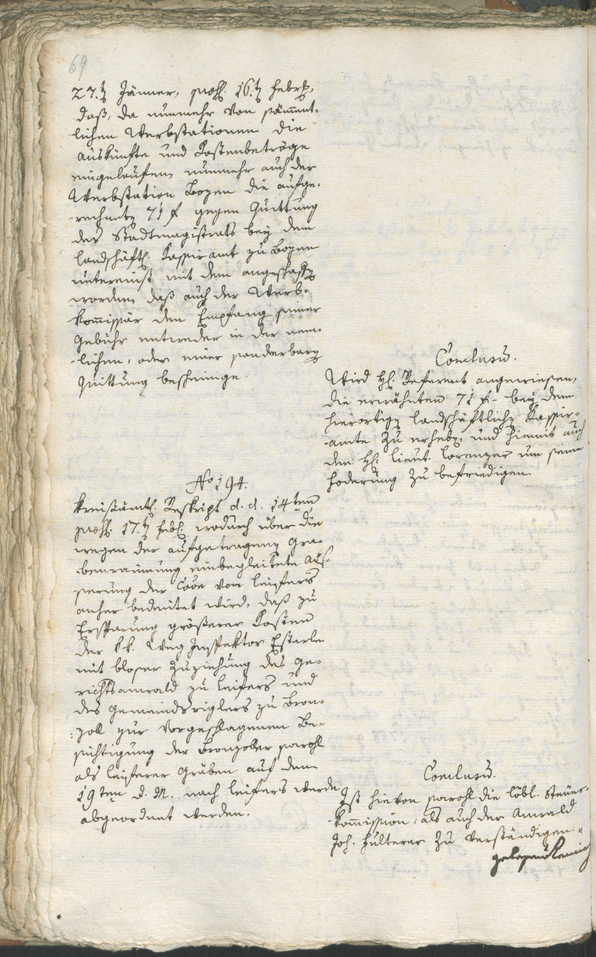 69
27t Jänner, præs. 16t Febr,
daß, da nunmehr von sämmt-
lichen Werbstationen die
Auskünfte und Kostenbeträge
eingeloffen nunmehr auch der
Werbstation Bozen die aufge-
rechnete 71 f gegen Quittung
des Stadtmagistrats bey dem
landschäftl. Kassieramt zu Bozen
mit dem angewiesen
worden, daß auch der Werb-
Kommissär den Empfang seiner
Gebühr entweder in der nem-
lichen, oder einer sonderbaren
Quittung bescheinige.
Conclusum.
Wird H. Referent angewiesen,
die erwähnten 71 f. bey dem
hierortigen landschäftlichen Kassier-
amte zu erheben, und hiemit auch
den H. Lieut. Lorenzer um seine
Foderung zu befriedigen.
No 194.
Kreisämtl. Reskript d. d. 14ten
præs. 17t Febr. wodurch über die
wegen der aufgetragenen Gra-
benraumung einbegleitete Äus-
serung der Cöve von Leifers
anher bedeutet wird, daß zu
Ersparung größerer Kosten
der kk. Weg Inspektor Esterle
mit bloser Zuziehung des Ge-
richtsanwald zu Leifers und
des Gemeindsrieglers zu Bron-
zoll zur vorgeschlagenen Be-
sichtigung der Bronzoller sowohl
als Leiferer Gräben auf dem
19ten d. M. nach Leifers werde
abgeordnet werden.
Conclusum.
Ist hievon sowohl die löbl. Steuer-
Kommission, als auch der Anwald
Joh. Hulterer zu verständigen.